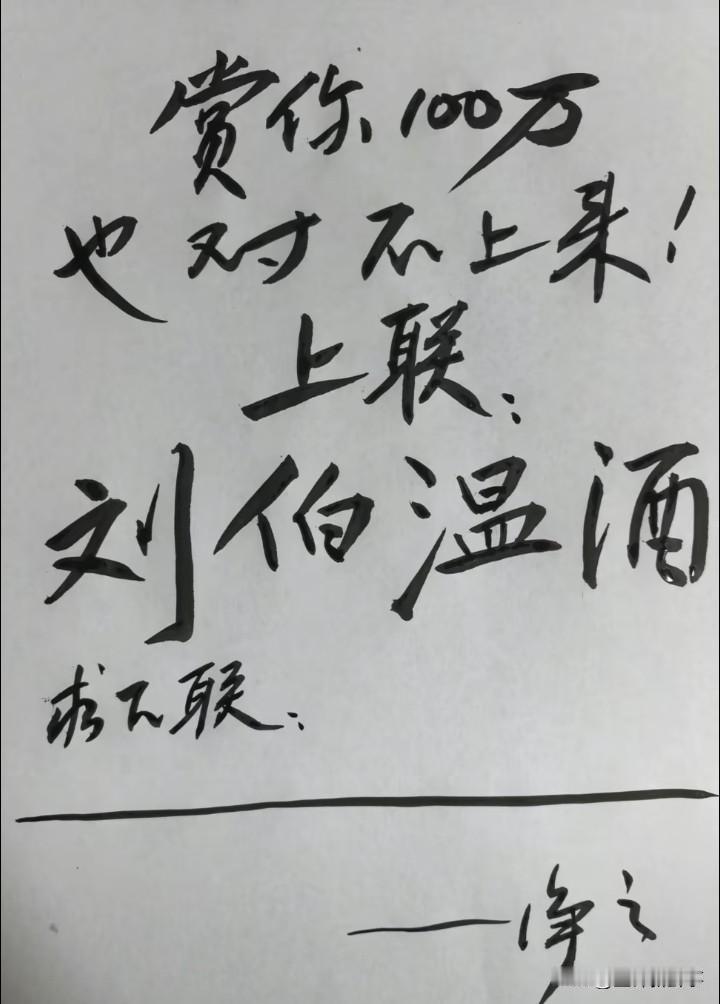 赏你100万
也对不上来！
上联：
刘伯温酒
求下联：
——净之